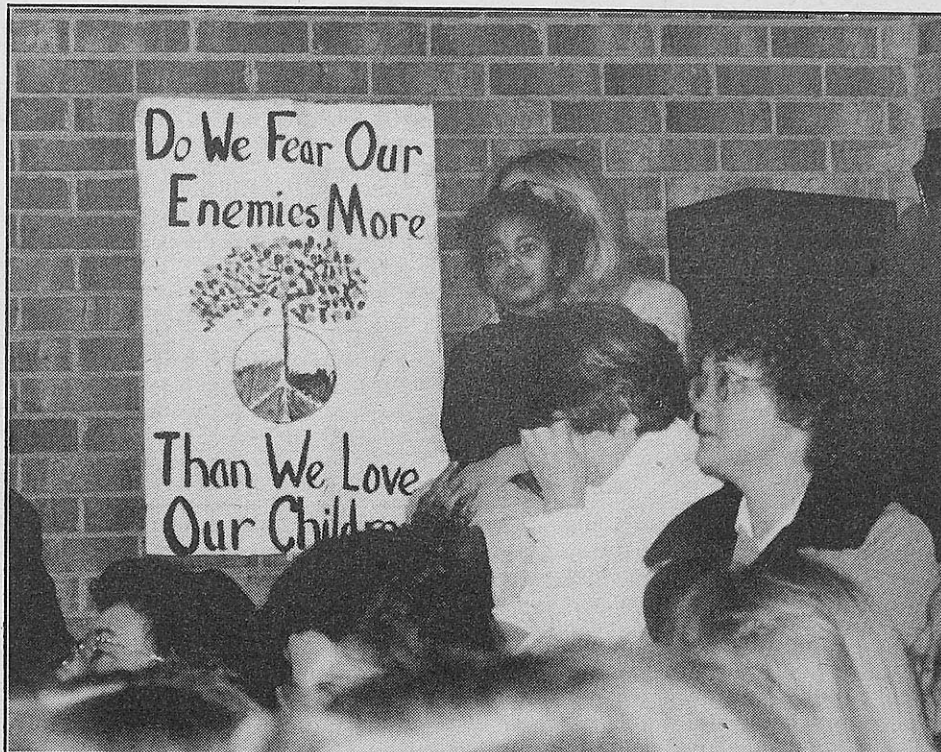 Do We Fear Our
Enemies More
Than We Love
Our Child